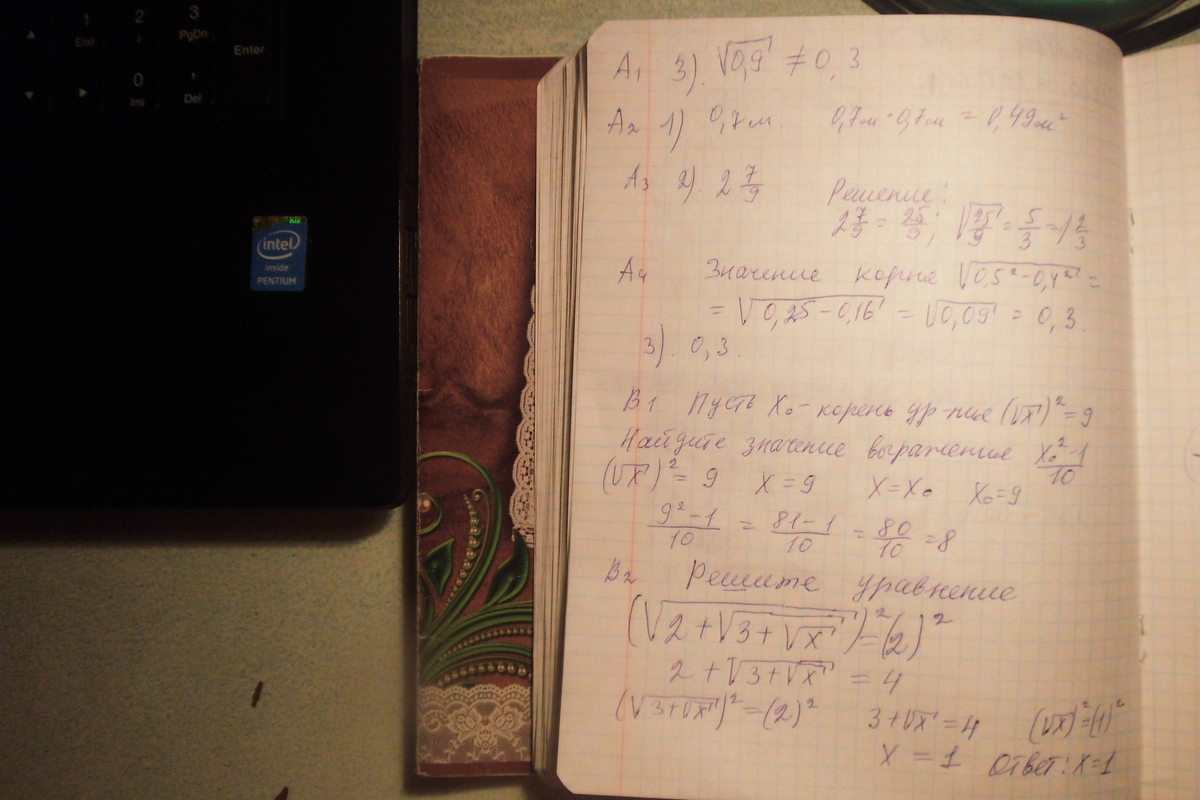 1
End
2
↓
3
PgDn
Enter
0
Ins
,
Del
intel
inside
PENTIUM
А1 3). √0,9 ≠ 0,3
А2 1) 0,7м. 0,7м · 0,7м = 0,49м²
А3 2). 2 7/9 Решение:
2 7/9 = 25/9; √(25/9) = 5/3 = 1 2/3
А4 Значение корня √(0,5² - 0,4²) =
= √(0,25 - 0,16) = √0,09 = 0,3.
3). 0,3.
В1 Пусть X₀ - корень ур-ние (√x)² = 9
Найдите значение выражение (X₀² - 1)/10
(√x)² = 9 X = 9 X = X₀ X₀ = 9
(9² - 1)/10 = (81 - 1)/10 = 80/10 = 8
В2 Решите уравнение
(√(2 + √(3 + √x)))² = (2)²
2 + √(3 + √x) = 4
(√(3 + √x))² = (2)² 3 + √x = 4 (√x)² = (1)²
X = 1 Ответ: X = 1